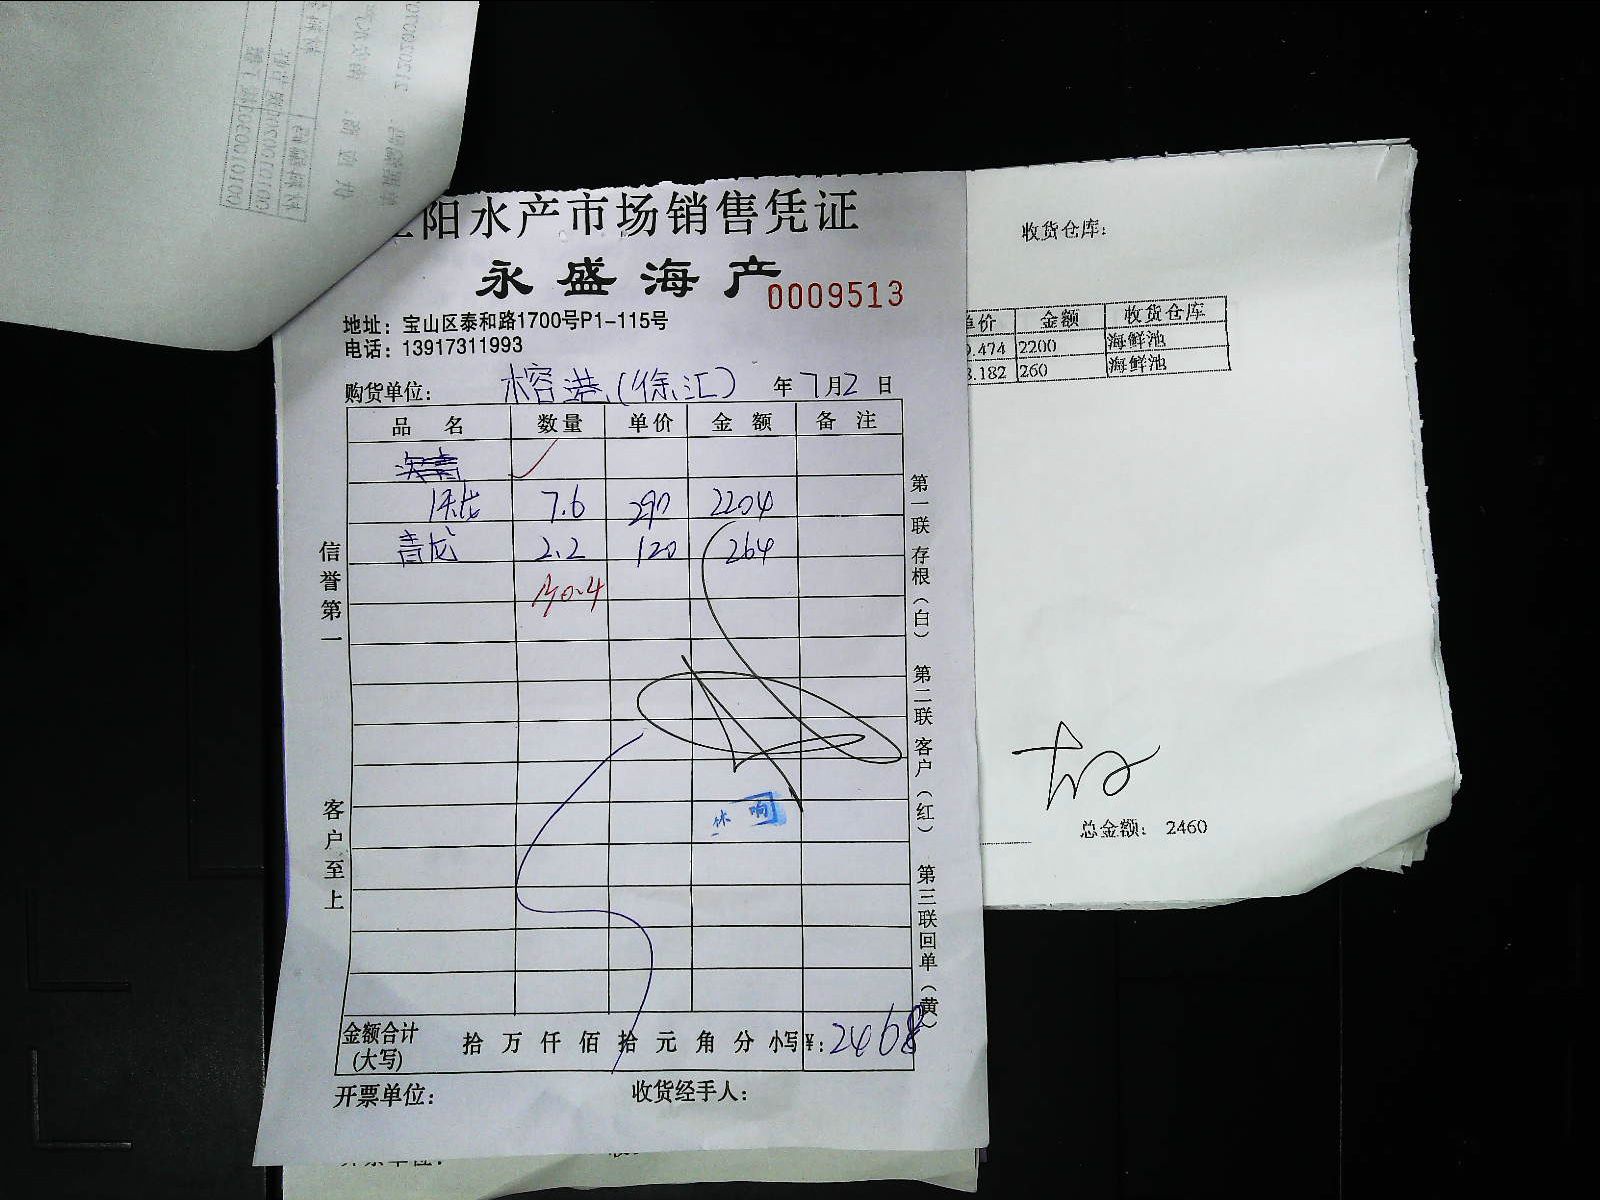 阳水产市场销售凭证
永盛海产
0009513
地址：宝山区泰和路1700号P1-115号
电话：13917311993
购货单位： 榕港(徐汇) 年 7月2 日
品 名 数量 单价 金 额 备 注
7.6 290 2204
青龙 2.2 120 264
信誉第一
客户至上
第一联存根(白) 第二联客户(红) 第三联回单(黄)
金额合计 拾 万 仟 佰 拾 元 角 分 小写¥: 2468
(大写)
开票单位： 收货经手人：
收货仓库：
单价 金额 收货仓库
.474 2200 海鲜池
.182 260 海鲜池
总金额： 2460